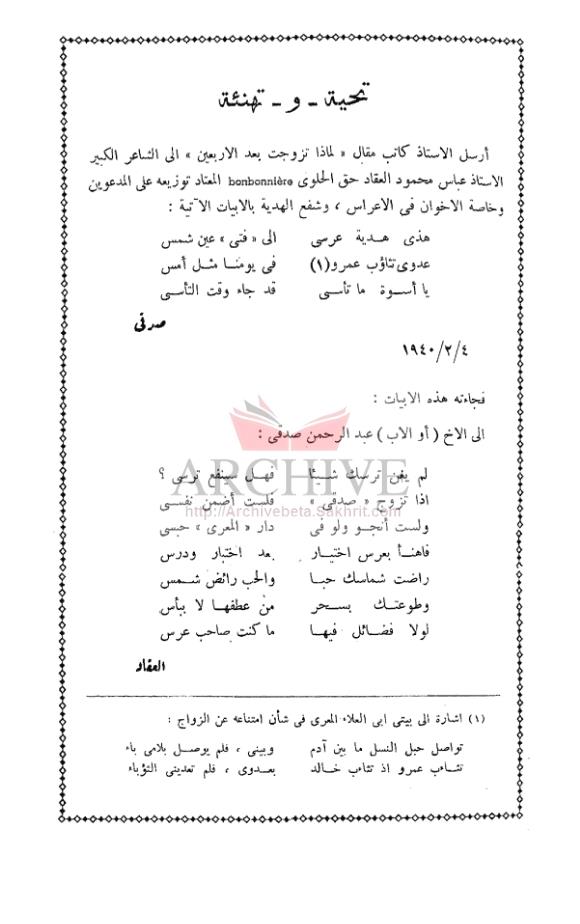 تحية ـ و ـ تهنئة
أرسل الاستاذ كاتب مقال « لماذا تزوجت بعد الاربعين » الى الشاعر الكبير
الاستاذ عباس محمود العقاد حق الحلوى bonbonnière المعتاد توزيعه على المدعوين
وخاصة الاخوان فى الاعراس ، وشفع الهدية بالابيات الآتية :
هذى هدية عرسى الى « فتى » عين شمس
عدوى تثاؤب عمرو (١) فى يومنا مثل أمس
يا أسوة ما تأسى قد جاء وقت التأسى
صدقى
١٩٤٠/٢/٤
فجاءته هذه الابيات :
الى الاخ ( أو الاب ) عبد الرحمن صدقى :
لم يغن ترسك شيئا فهل سينفع ترسى ؟
اذا تزوج « صدقى » فلست أضمن نفسى
ولست أنجو ولو فى دار « المعرى » حبسى
فاهنأ بعرس اختيار بعد اختبار ودرس
راضت شماسك حبا والحب رائض شمس
وطوعتك بسحر من عطفها لا ببأس
لولا فضائل فيها ما كنت صاحب عرس
العقاد
ARCHIVE
http://Archivebeta.Sakhrit.com
(١) اشارة الى بيتى ابى العلاء المعرى فى شأن امتناعه عن الزواج :
تواصل حبل النسل ما بين آدم وبينى ، فلم يوصل بلامى باء
تثاءب عمرو اذ تثاءب خالد بعدوى ، فلم تعدينى الثؤباء